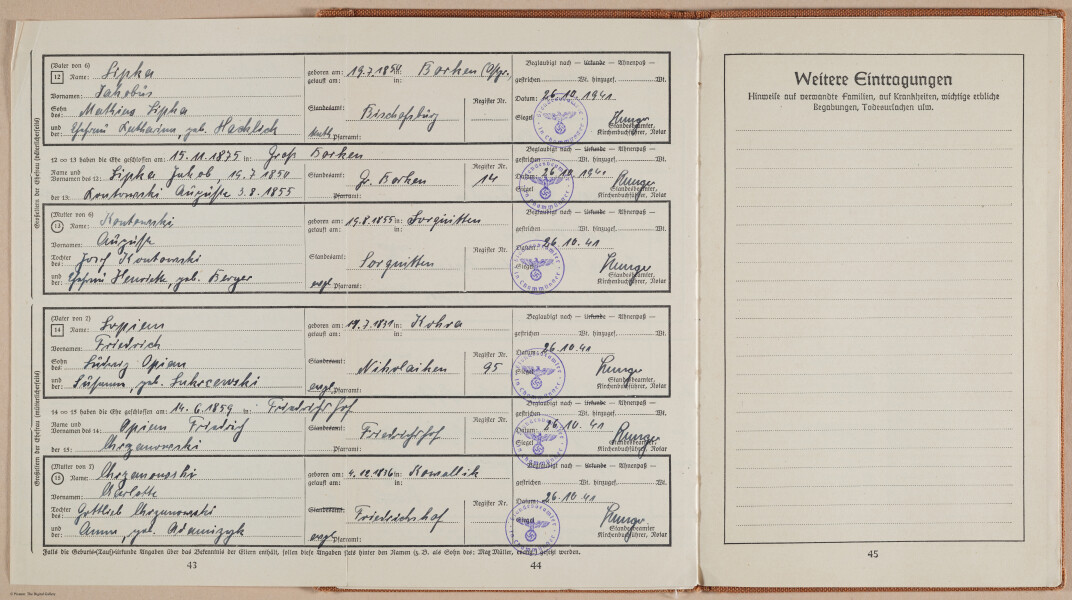 Großeltern der Ehefrau (mütterlicherseits)
(Vater von 6) geboren am: 19.7.1850 in: Borken O/Pr. Beglaubigt nach — Urkunde — Ahnenpaß —
12 Name: Lipka getauft am: gestrichen Wt. hinzugef. Wt.
Vornamen: Jakobus Register Nr. Datum: 26.10.1941
Sohn des: Mathias Lipka Standesamt: Bischofsburg Siegel
und der: Ehefrau Katharina, geb. kath. Pfarramt: Standesbeamter, Kirchenbuchführer, Notar
12 ∞ 13 haben die Ehe geschlossen am: 15.11.1875 in: Groß Borken Beglaubigt nach — Urkunde — Ahnenpaß —
Register Nr. gestrichen Wt. hinzugef. Wt.
Name und Vornamen des 12: Lipka Jakob, 19.7.1850 Standesamt: Gr. Borken 14 Datum: 26.10.1941
der 13: Kontowski Auguste 3.8.1855 Pfarramt: Siegel Standesbeamter, Kirchenbuchführer, Notar
(Mutter von 6) geboren am: 19.8.1855 in: Sorquitten Beglaubigt nach — Urkunde — Ahnenpaß —
13 Name: Kontowski getauft am: gestrichen Wt. hinzugef. Wt.
Vornamen: Auguste Register Nr. Datum: 26.10.41
Tochter des: Josef Kontowski Standesamt: Sorquitten Siegel
und der: Ehefrau Henriette, geb. Berger evgl. Pfarramt: Standesbeamter, Kirchenbuchführer, Notar
Großeltern der Ehefrau (mütterlicherseits)
(Vater von 7) geboren am: 19.7.1831 in: Beglaubigt nach — Urkunde — Ahnenpaß —
14 Name: getauft am: gestrichen Wt. hinzugef. Wt.
Vornamen: Friedrich Register Nr. Datum: 26.10.41
Sohn des: Ludwig Opien Standesamt: Nikolaiken 95 Siegel
und der: Susanna, geb. evgl. Pfarramt: Standesbeamter, Kirchenbuchführer, Notar
14 ∞ 15 haben die Ehe geschlossen am: 14.6.1859 in: Friedrichshof Beglaubigt nach — Urkunde — Ahnenpaß —
Register Nr. gestrichen Wt. hinzugef. Wt.
Name und Vornamen des 14: Opien Friedrich Standesamt: Friedrichshof Datum: 26.10.41
der 15: Chrzanowski Pfarramt: Siegel Standesbeamter, Kirchenbuchführer, Notar
(Mutter von 7) geboren am: 4.12.1836 in: Kowallik Beglaubigt nach — Urkunde — Ahnenpaß —
15 Name: Chrzanowski getauft am: gestrichen Wt. hinzugef. Wt.
Vornamen: Karlotte Register Nr. Datum: 26.10.41
Tochter des: Gottlieb Chrzanowski Standesamt: Friedrichshof Siegel
und der: Anna, geb. Adamizyk evgl. Pfarramt: Standesbeamter, Kirchenbuchführer, Notar
Falls die Geburts-(Tauf-)Urkunde Angaben über das Bekenntnis der Eltern enthält, sollen diese Angaben stets hinter den Namen (z. B. als Sohn des: Max Müller, evang.) gesetzt werden.
43
44
Weitere Eintragungen
Hinweise auf verwandte Familien, auf Krankheiten, wichtige erbliche
Begabungen, Todesursachen usw.
45